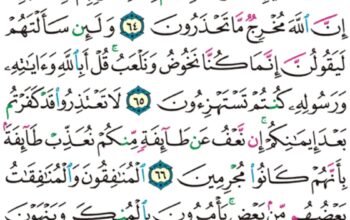 إِنَّ ٱللَّهَ مُخۡرِجٞ مَّا تَحۡذَرُونَ ٦٤ وَلَئِن سَأَلۡتَهُمۡ
لَيَقُولُنَّ إِنَّمَا كُنَّا نَخُوضُ وَنَلۡعَبُۚ قُلۡ أَبِٱللَّهِ وَءَايَٰتِهِۦ
وَرَسُولِهِۦ كُنتُمۡ تَسۡتَهۡزِءُونَ ٦٥ لَا تَعۡتَذِرُواْ قَدۡ كَفَرۡتُم
بَعۡدَ إِيمَٰنِكُمۡۚ إِن نَّعۡفُ عَن طَآئِفَةٖ مِّنكُمۡ نُعَذِّبۡ طَآئِفَةَۢ
بِأَنَّهُمۡ كَانُواْ مُجۡرِمِينَ ٦٦ ٱلۡمُنَٰفِقُونَ وَٱلۡمُنَٰفِقَٰتُ
بَعۡضُهُم مِّنۢ بَعۡضٖۚ يَأۡمُرُونَ بِٱلۡمُنكَرِ وَيَنۡهَوۡنَ